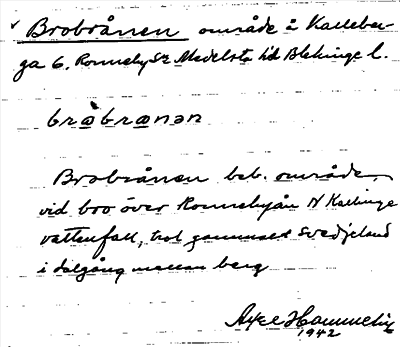 ✓ Brobrånen område å Kalleber-
ga 6. Ronneby sn Medelsta hd Blekinge l.
bròbrånən
Brobrånen beb. område
vid bro över Ronnebyån N Kallinge
vattenfall, trol gammalt svedjeland
i dalgång mellan berg
Axel Hammelin
1942